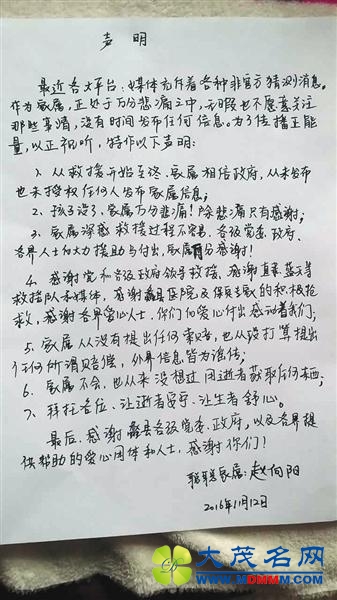 声 明
最近各大平台、媒体充斥着各种非官方猜测消息。
作为家属,正处于万分悲痛之中,无暇也不愿意关注
那些事情,没有时间发布任何信息。为了传播正能
量,以正视听,特作以下声明:
1、从救援开始至终、家属相信政府,从未发布
也未授权任何人发布家属信息;
2、孩子没了,家属万分悲痛!除悲痛只有感谢;
3、家属深感救援过程不容易,各级党委、政府、
各界人士的大力援助与付出,家属万分感谢!
4、感谢党和各级政府领导救援,感谢 蓝天等
救援队和媒体,感谢蠡县医院及保 的积极抢
救,感谢各界爱心人士,你们的爱心付出感动着我们;
5、家属从没有提出任何索赔,也从没打算提出
任何所谓赔偿,外界信息皆为谣传;
6、家属不会,也从来没想过因逝者获取任何东西;
7、拜托各位、让逝者安宁、让生者舒心。
最后,感谢蠡县各级党委、政府,以及各界提
供帮助的爱心团体和人士,感谢你们!
聪聪家属:赵向阳
2016年11月12日
大茂名网
WWW.MDMMM.COM